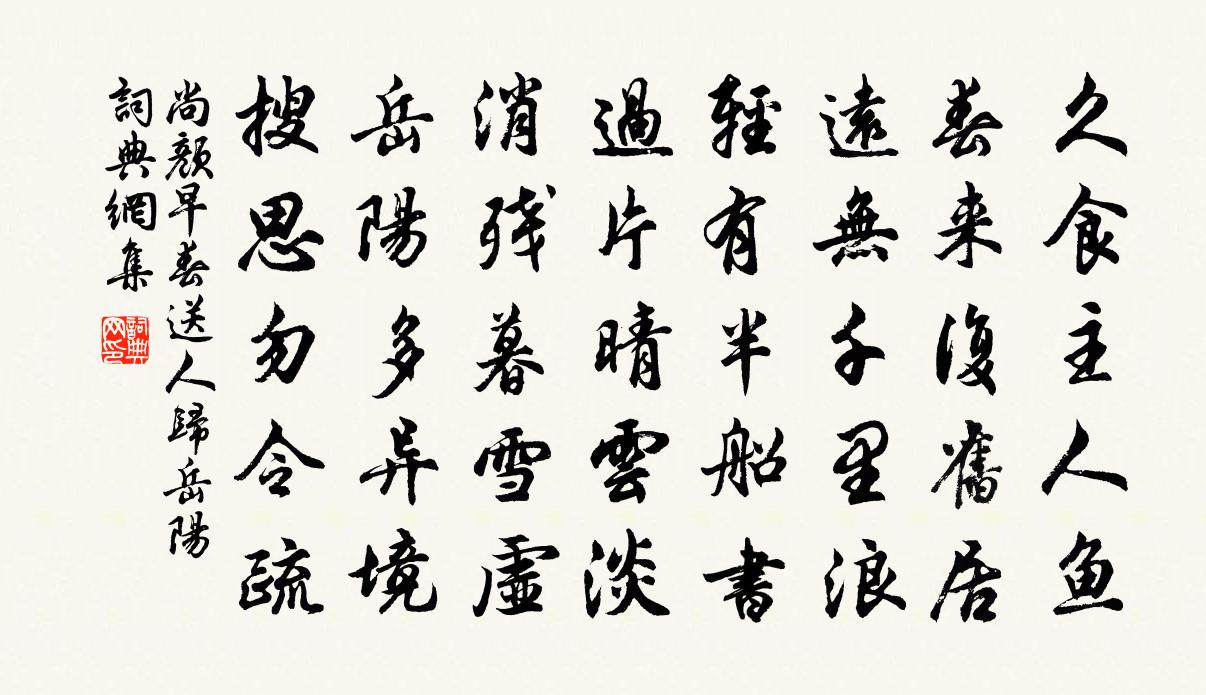 久食主人魚
春来復舊居
遠無千里浪
輕有半船書
過片晴雲淡
消残暮雪虛
岳陽多异境
搜思勿令疏
尚顏早春送人歸岳陽
詞典網集
詞典网印